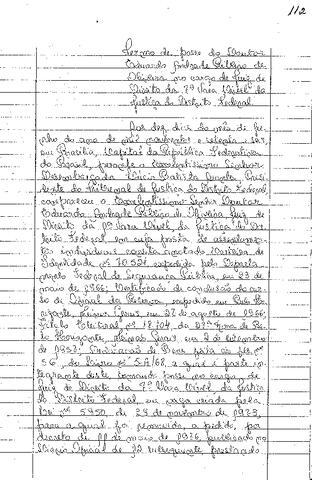 112
Termo de posse do Doutor
Eduardo Andrade Ribeiro de
Oliveira no cargo de Juiz de
Direito da 7ª Vara Cível da
Justiça do Distrito Federal.
Aos dez dias do mês de ju-
nho do ano de mil novecentos e setenta e seis,
em Brasília, Capital da República Federativa
do Brasil, perante o Excelentíssimo Senhor
Desembargador Lúcio Batista Arantes, Presi-
dente do Tribunal de Justiça do Distrito Federal,
compareceu o Excelentíssimo Senhor Doutor
Eduardo Andrade Ribeiro de Oliveira, Juiz de
Direito da Vara Cível da Justiça do Dis-
trito Federal, em cuja pasta de assentamen-
tos individuais consta anotado: Carteira de
Identidade nº expedida pelo Departa-
mento Federal de Segurança Pública, em 23 de
maio de 1966; Certificado de conclusão do cur-
so de Oficial da Reserva, expedido em Belo Ho-
rizonte, Minas Gerais, em 27 de agosto de 1966;
Título Eleitoral nº Zona de Belo
Horizonte, Minas Gerais, em 2 de setembro
de 1957; Declaração de Bens feita às fls. nº
56, do Livro nº e que é parte in-
tegrante deste tomando posse no cargo de
Juiz de Direito da 7ª Vara Cível da Justiça
do Distrito Federal, em vaga criada pela
Lei nº 5950, de 29 de novembro de 1973,
para a qual foi removido, a pedido, por
decreto de 11 de maio de 1976, publicado no
Diário Oficial de 12 subsequente prestando